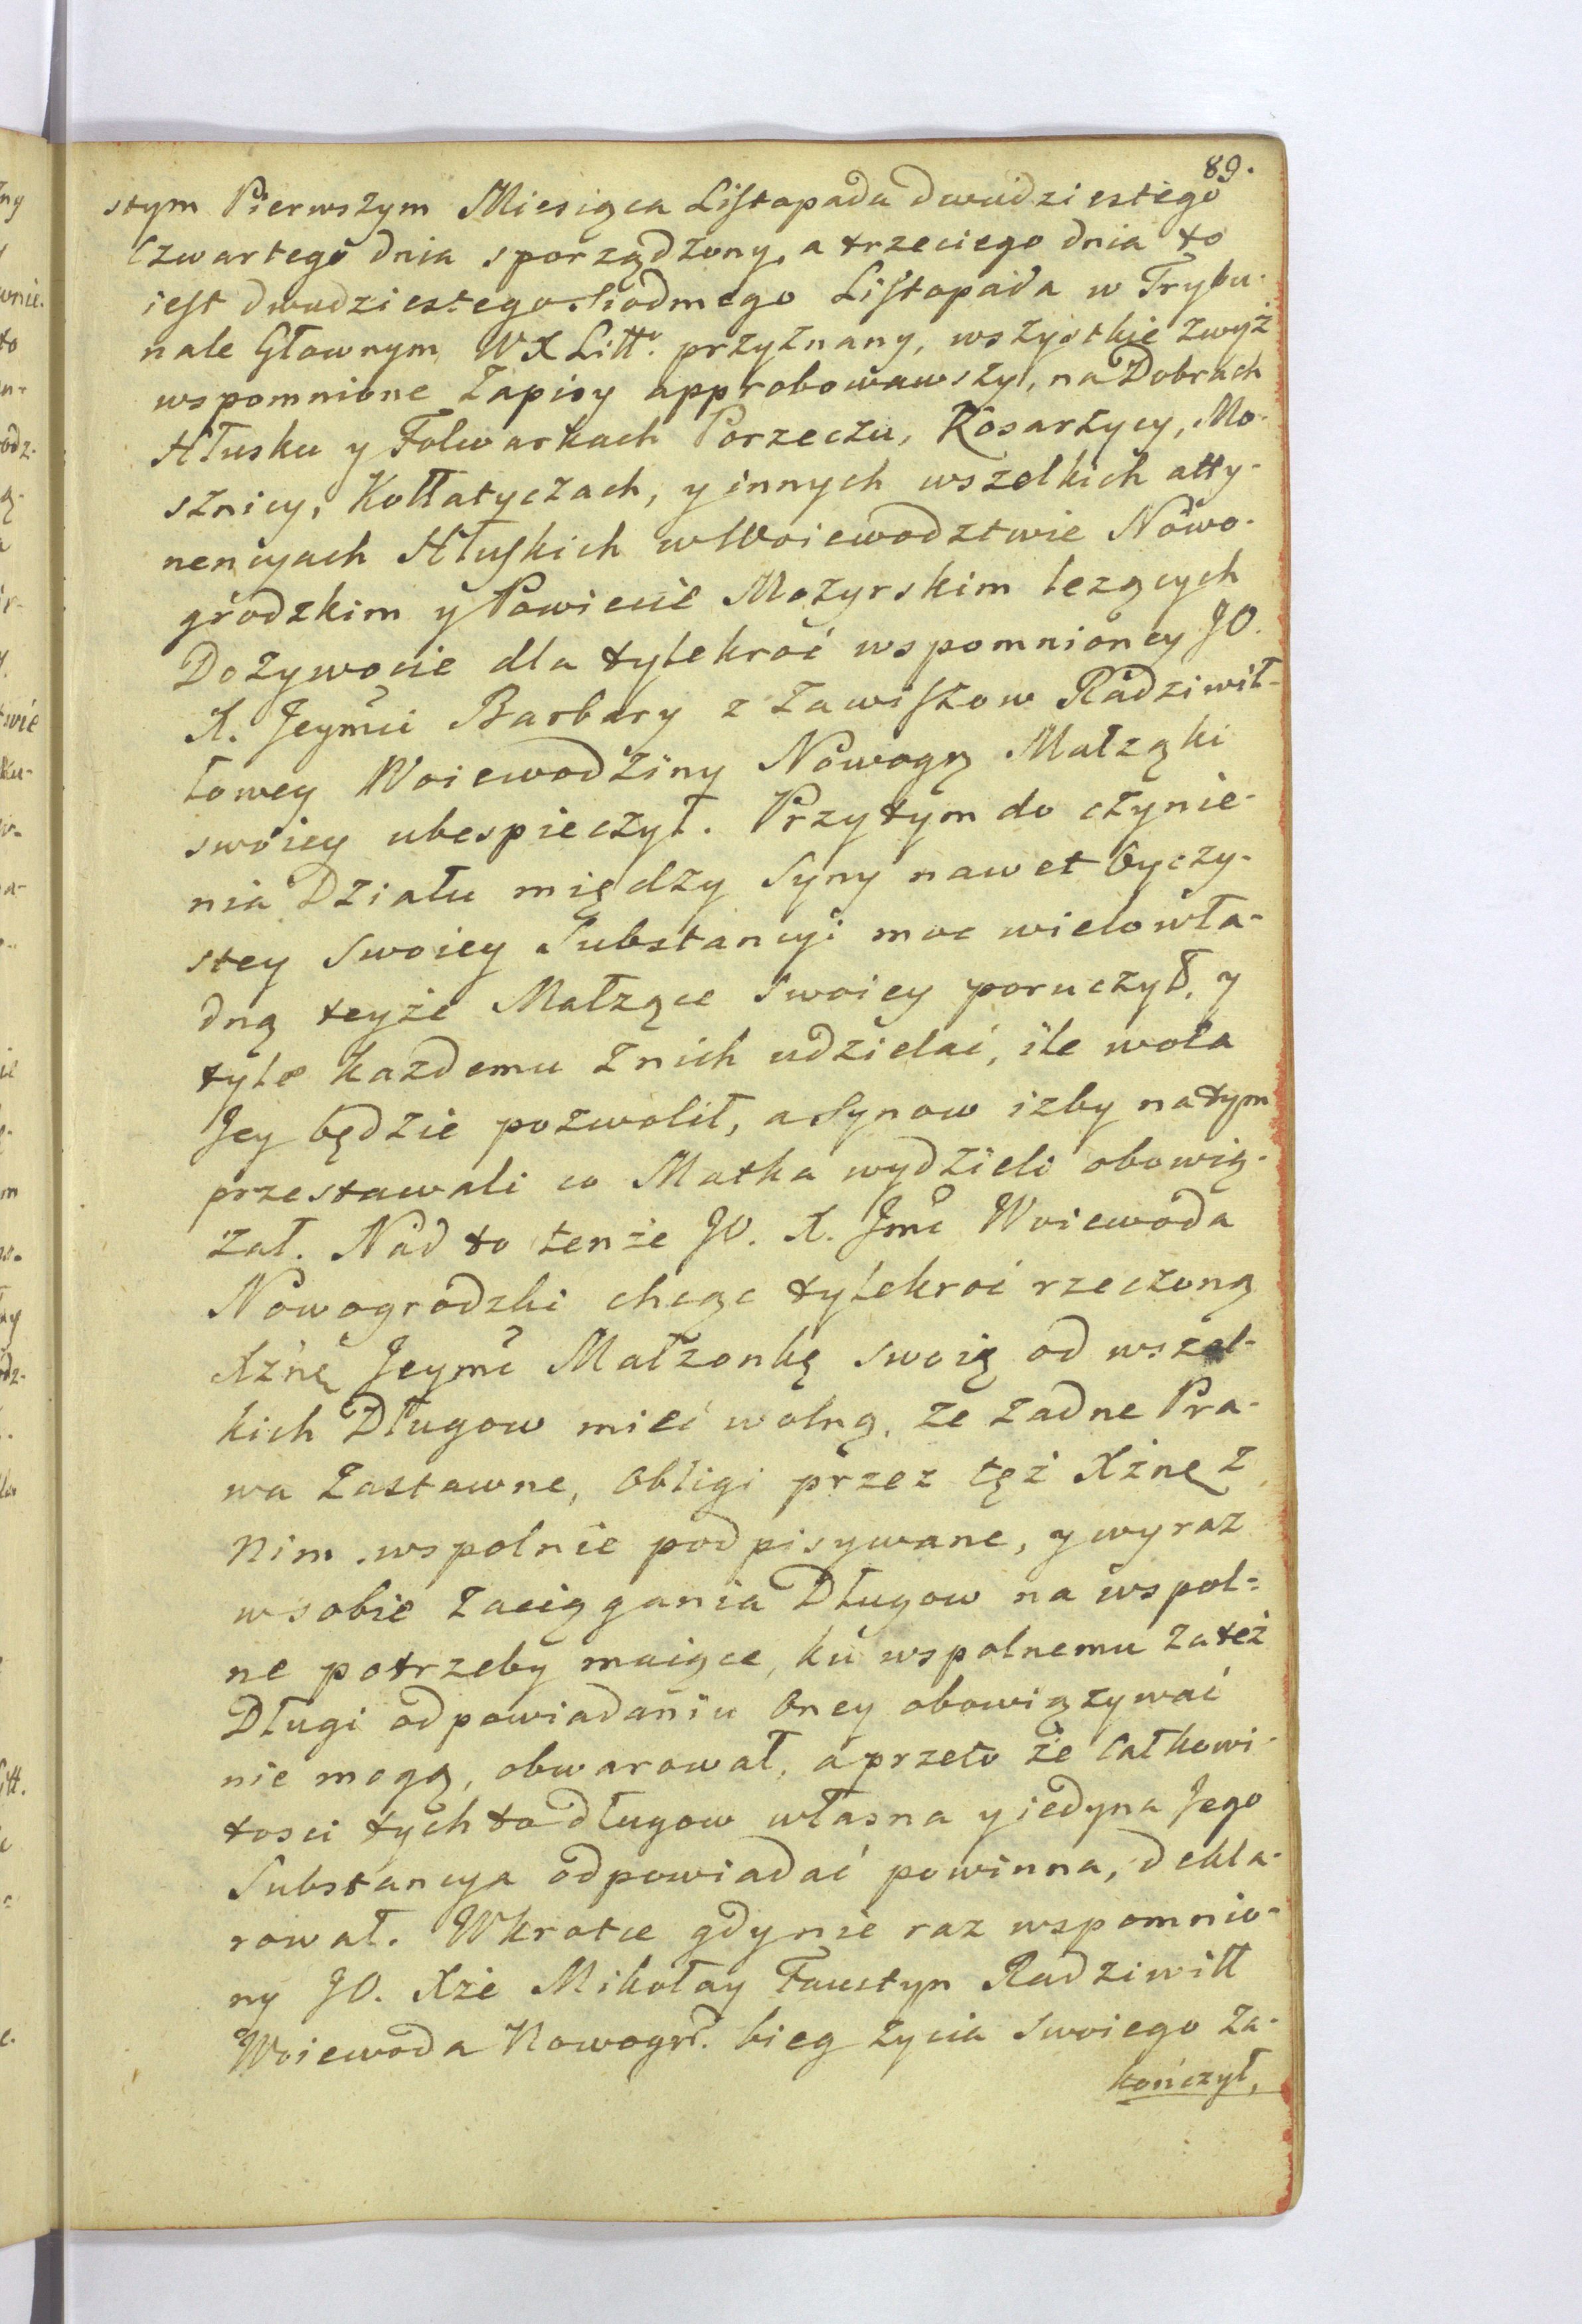 89.
stym Pierwszym Miesiąca Listopada dwudziestego
Czwartego dnia sporządzony, a trzeciego dnia to
iest dwudziestego Siodmego Listopada w Trybu-
nale Głownym WXLitt: przyznany, wszystkie zwyż
wspomnione Zapisy approbowawszy, na Dobrach
Hłusku y Folwarkach Porzeczu, Kosarzycy, Mo-
sznicy, Kołłatyczach, y innych wszelkich atty-
nencyach Hłuskich w Woiewodztwie Nowo-
grodzkim y Powiecie Mozyrskim lezących
Dozywocie dla tylekroć wspomnioney JO.
X. Jeymci Barbary z Zawiszow Radziwił-
łowey Woiewodziny Nowogrz Małząki
swoiey ubespieczył. Przytym do czynie-
nia Działu między Syny nawet Oyczy-
stey Swoiey Substancyi moc wielowła-
dną teyże Małzące Swoiey poruczył, y
tyle każdemu z nich udzielać, ile wola
Jey będzie pozwolił, a Synow izby na tym
przestawali co Matka wydzieli obowią-
zał. Nad to tenże JO. X. Jmć Woiewoda
Nowogrodzki chcąc tylekroć rzeczoną
Xżnę Jeymć Małzonkę swoię od wszel-
kich Długow mieć wolną, że żadne Pra-
wa Zastawne, Obligi przez tęż Xżnę z
Nim wspolnie podpisywane, y wyraz
w sobie zaciągania Długow na wspol-
ne potrzeby maiące, ku wspolnemu za też
Długi odpowiadaniu Oney obowiązywać
nie mogą, obwarował, a przeto że całkowi-
tosci tych to długow własna y iedyna Jego
Substancya odpowiadać powinna, dekla-
rował. Wkrotce gdy nie raz wspomnio-
ny JO. Xże Mikołay Faustyn Radziwiłł
Woiewoda Nowogr. bieg życia Swoiego za-
kończył,